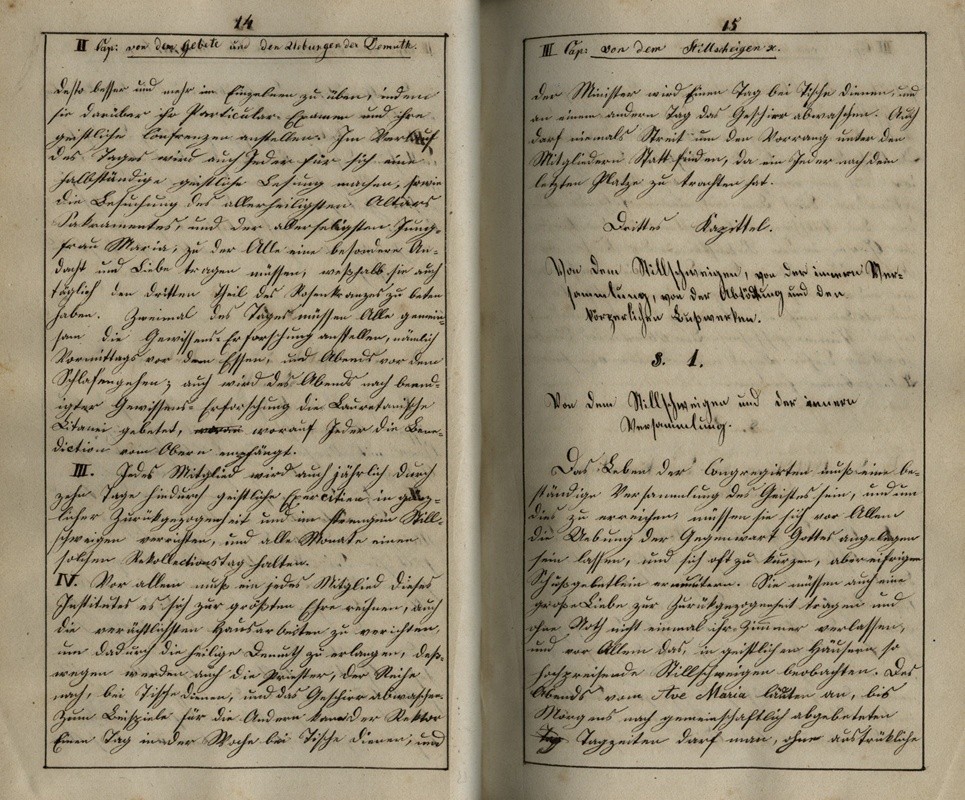 14
II Cap: von dem Gebete und den Uebungen der Demuth.
desto besser und mehr im Einzelnen zu üben, indem
sie darüber ihr Particular-Examen und ihre
geistliche Conferenzen anstellen. Im Verlauf
des Tages wird auch Jeder für sich eine
halbständige geistliche Lesung machen, sowie
die Besuchung des allerheiligsten Altars
Sakramentes, und der allerseligsten Jung-
frau Maria, zu der Alle eine besondere An-
dacht und Liebe tragen müssen, weßhalb sie auch
täglich den dritten Theil des Rosenkranzes zu beten
haben. Zweimal des Tages müssen Alle gemein-
sam die Gewissens-Erforschung anstellen, nämlich
Vormittags vor dem Essen, und Abends vor dem
Schlafengehen; auch wird des Abends nach beend-
igter Gewissens-Erforschung die Lauretanische
Litanei gebetet, worauf Jeder die Bene-
diction vom Obern empfängt.
III. Jedes Mitglied wird auch jährlich durch
zehn Tage hindurch geistliche Exercitien in gänz-
licher Zurückgezogenheit und im strengen Still-
schweigen verrichten, und alle Monate einen
solchen Rekollectionstag halten.
IV. Vor allem muß ein jedes Mitglied dieses
Institutes es sich zur größten Ehre rechnen, auch
die verächtlichsten Hausarbeiten zu verichten,
um dadurch die heilige Demuth zu erlangen, deß-
wegen werden auch die Priester, der Reihe
nach, bei Tische dienen, und das Geschirr abwaschen.
Zum Beispiele für die Andern kann der Rektor
Einen Tag in der Woche bei Tische dienen, und
15
III Cap: von dem Stillscheigen x.
der Minister wird Einen Tag bei Tische dienen, und
an einem andern Tag das Geschirr abwaschen. Auch
darf niemals Streit um den Vorrang unter den
Mitgliedern Statt finden, da ein Jeder nach dem
letzten Platze zu trachten hat.
Drittes Kapittel.
Von dem Stillschweigen, von der innern Ver-
sammlung, von der Abtödtung und den
körperlichen Bußwerken.
§. 1.
Von dem Stillschweigen und der innern
Versammlung.
Das Leben der Congregirten muß eine be-
ständige Versammlung des Geistes sein, und um
dies zu erreichen, müssen sie sich vor Allem
die Uebung der Gegenwart Gottes angelegen
sein lassen, und sich oft zu kurzen, aber eifrigen
Schußgebetlein ermuntern. Sie müssen auch eine
große Liebe zur Zurückgezogenheit tragen und
ohne Noth nicht einmal ihr Zimmer verlassen,
und vor Allem das, in geistlichen Häusern so
hochpreisende Stillschweigen beobachten. Des
Abends vom Ave Maria läuten an, bis
Morgens nach gemeinschaftlich abgebeteten
Tagzeiten darf man, ohne ausdrükliche